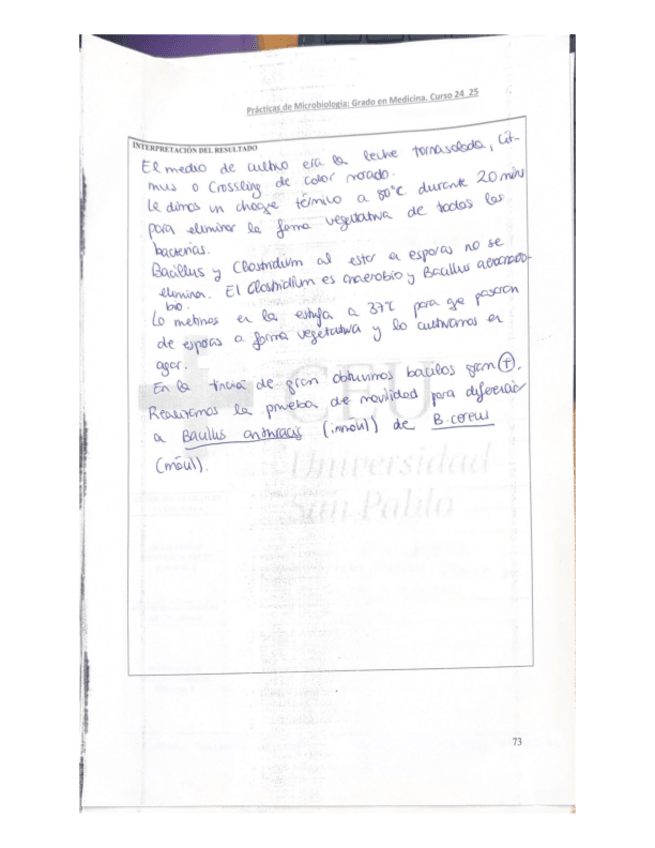 Prácticas de Microbiología: Grado en Medicina. Curso 24_25
INTERPRETACIÓN DEL RESULTADO
El medio de cultivo era la leche tornasolada, Lit-
mus o Crossling de color morado.
Le dimos un choque térmico a 80°C durante 20 min
para eliminar la forma vegetativa de todas las
bacterias.
Bacillus y Clostridium al estar en esporas no se
eliminan. El Clostridium es anaerobio y Bacillus
bio.
Lo metimos en la estufa a 37°C para que pasaran
de esporas a forma vegetativa y lo cultivamos en
agar.
En la tinción de gram obtuvimos bacilos gram +.
Realizamos la prueba de movilidad para diferenciar
a Bacillus anthracis (inmóvil) de B. cereus
(móvil).
CEU
Universidad
San Pablo
73